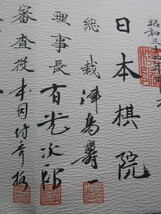 昭和三十
日本棋院
総裁 津島壽一
理事長 有光次郎
審査役 本因坊秀格